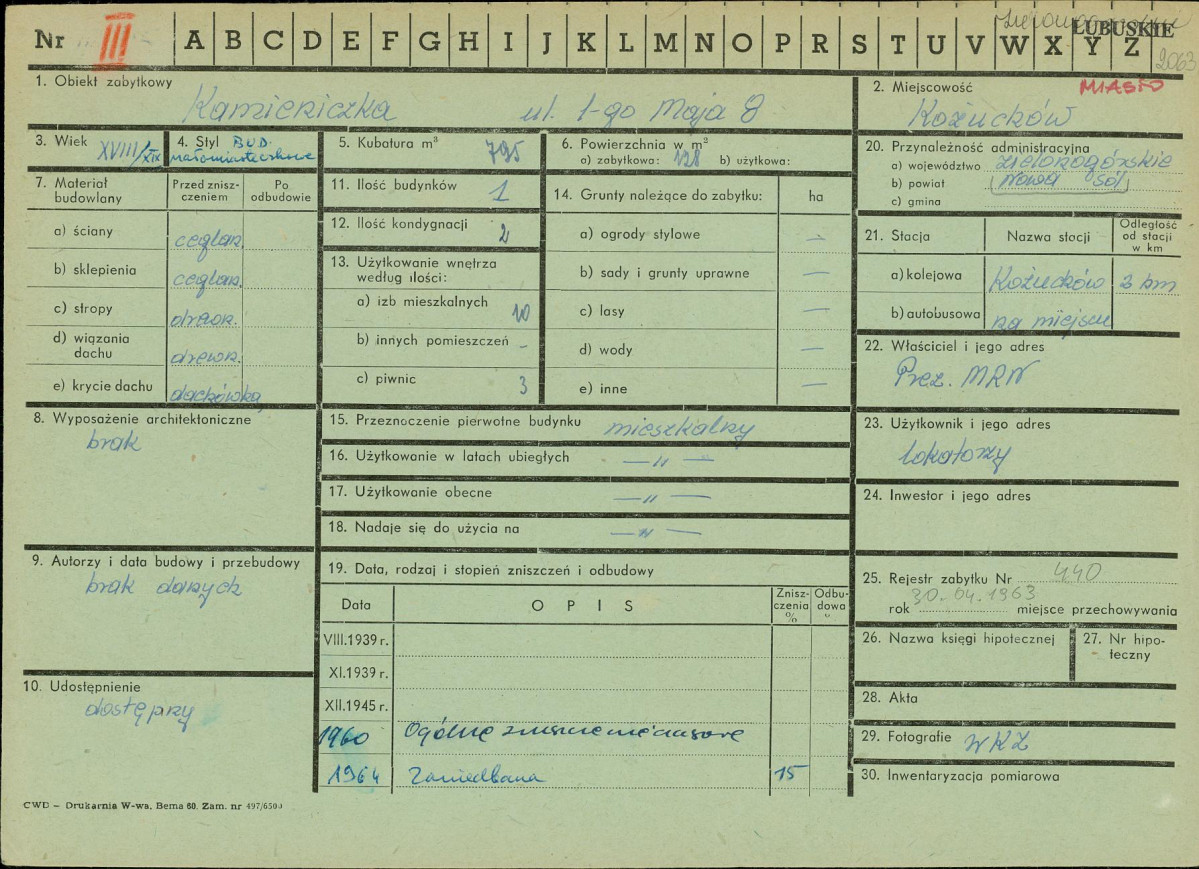 Nr III A B C D E F G H I J K L M N O P R S T U V W X Y Z
LUBUSKIE
2063
1. Obiekt zabytkowy
Kamieniczka ul. 1-go Maja 8
2. Miejscowość MIASTO
Kożuchów
3. Wiek XVIII/XIX
4. Styl BUD. małomiasteczkowe
5. Kubatura m³ 795
6. Powierzchnia w m²
a) zabytkowa: 128 b) użytkowa:
20. Przynależność administracyjna
a) województwo zielonogórskie
b) powiat (Nowa Sól)
c) gmina
7. Materiał budowlany
Przed zniszczeniem
Po odbudowie
a) ściany ceglan.
b) sklepienia ceglan.
c) stropy drewn.
d) wiązania dachu drewn.
e) krycie dachu dachówka
11. Ilość budynków 1
12. Ilość kondygnacji 2
13. Użytkowanie wnętrza według ilości:
a) izb mieszkalnych 10
b) innych pomieszczeń -
c) piwnic 3
14. Grunty należące do zabytku: ha
a) ogrody stylowe —
b) sady i grunty uprawne —
c) lasy —
d) wody —
e) inne —
21. Stacja Nazwa stacji Odległość od stacji w km
a) kolejowa Kożuchów 2 km
b) autobusowa na miejscu
22. Właściciel i jego adres
Prez. MRN
8. Wyposażenie architektoniczne
brak
15. Przeznoczenie pierwotne budynku mieszkalny
16. Użytkowanie w latach ubiegłych — " —
17. Użytkowanie obecne — " —
18. Nadaje się do użycia na — " —
23. Użytkownik i jego adres
lokatorzy
24. Inwestor i jego adres
9. Autorzy i data budowy i przebudowy
brak danych
19. Data, rodzaj i stopień zniszczeń i odbudowy
Data OPIS Zniszczenia % Odbudowa %
VIII.1939 r.
XI.1939 r.
XII.1945 r.
1960 Ogólnie
1964 Zaniedbana 15
25. Rejestr zabytku Nr 440
rok 30.04.1963 miejsce przechowywania
26. Nazwa księgi hipotecznej
27. Nr hipoteczny
10. Udostępnienie
dostępny
28. Akta
29. Fotografie WKZ
30. Inwentaryzacja pomiarowa
CWD – Drukarnia W-wa, Bema 60. Zam. nr 497/6500